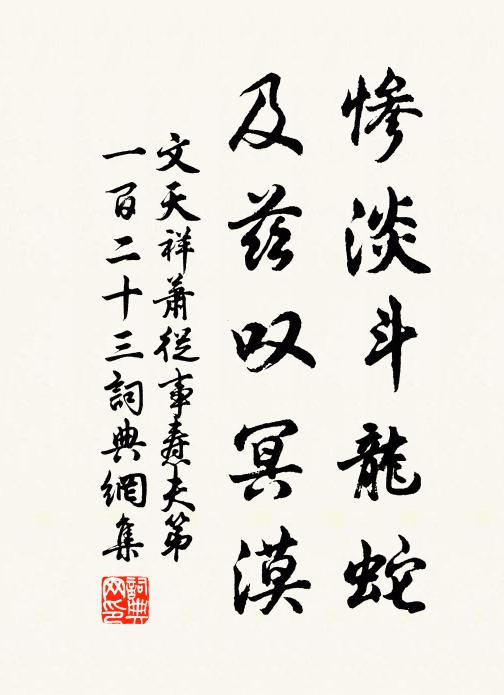 惨淡斗龍蛇
及兹叹冥漠
文天祥蕭從事燾夫第
一百二十三詞典網集
詞典网印